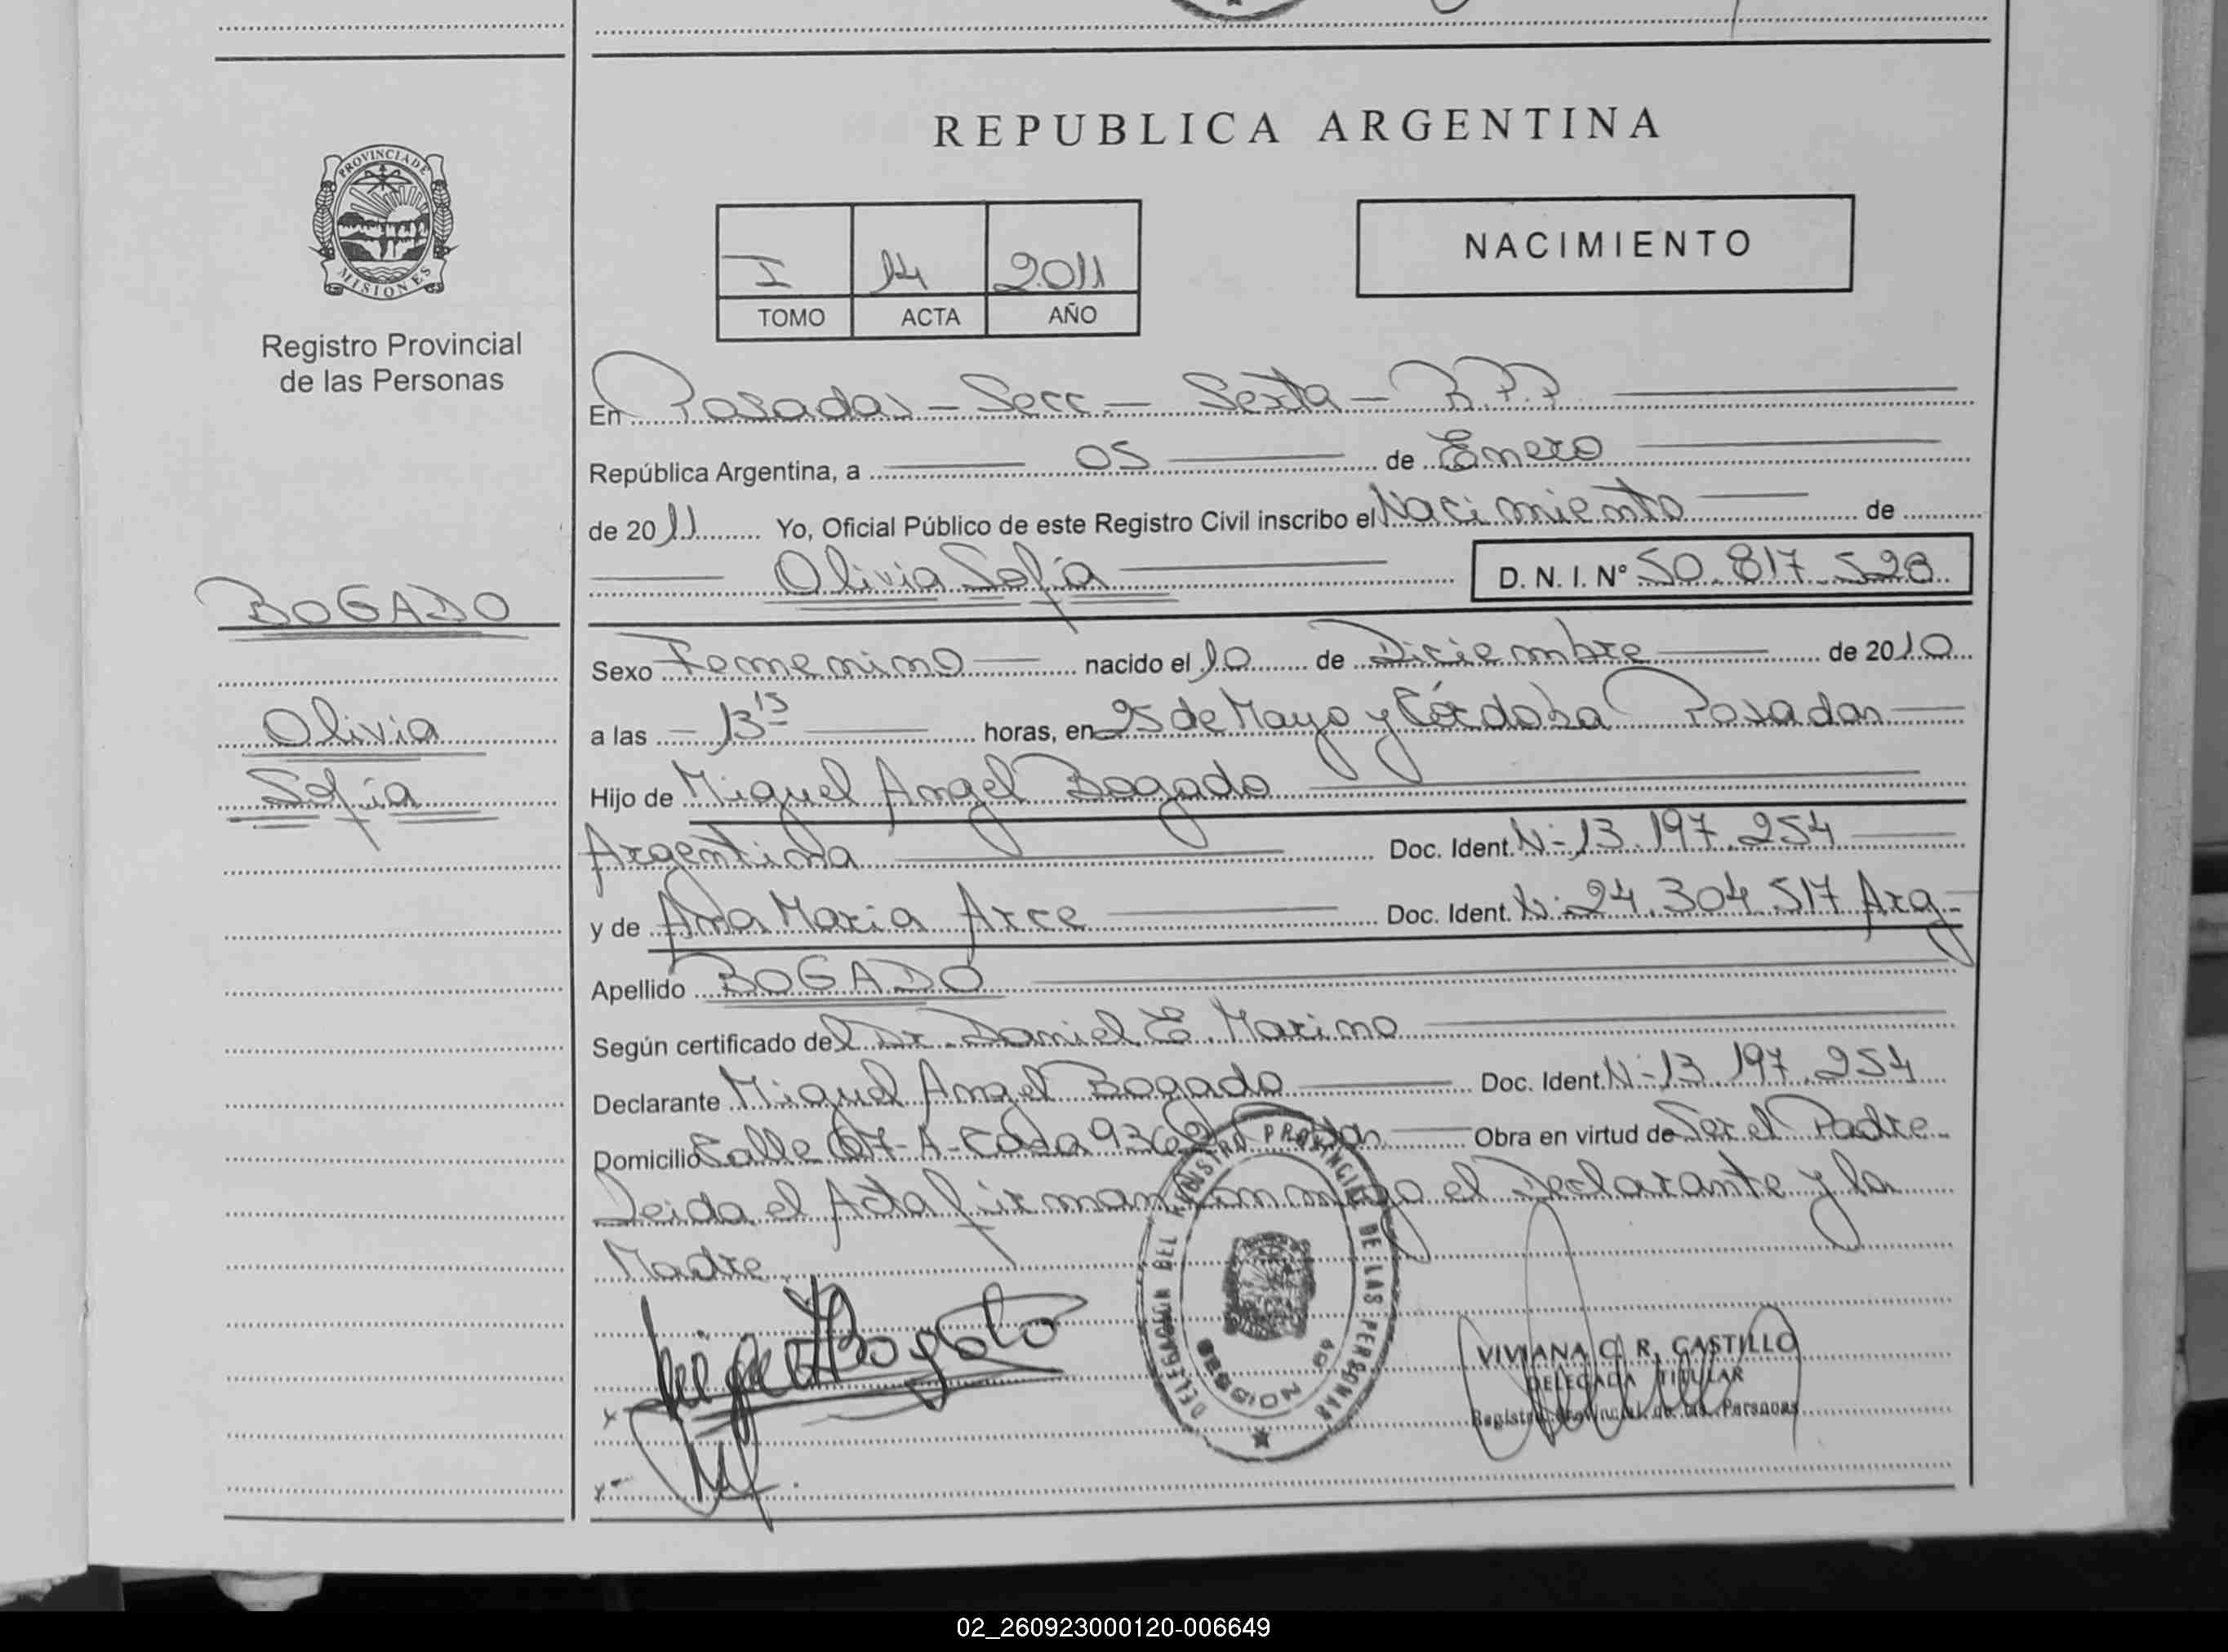 REPUBLICA ARGENTINA
PROVINCIA DE
MISIONES
Registro Provincial
de las Personas
I 14 2011
TOMO ACTA AÑO
NACIMIENTO
En Posadas - Secc - Sexta - R.P.P
República Argentina, a 05 de Enero
de 2011 Yo, Oficial Público de este Registro Civil inscribo el Nacimiento de
Olivia Sofía D. N. I. N° 50.817.528
BOGADO
Olivia
Sofía
Sexo Femenino nacido el 10 de Diciembre de 2010
a las - 13 15 horas, en 25 de Mayo y Córdoba Posadas
Hijo de Miguel Angel Bogado
Argentina Doc. Ident. N- 13.197.254
y de Ana Maria Arce Doc. Ident. N: 24.304.517 Arg-
Apellido BOGADO
Según certificado del Dr. Daniel E. Marino
Declarante Miguel Angel Bogado Doc. Ident. N- 13.197.254
Domicilio Calle 67-A-Casa Obra en virtud de Ser el Padre
Leida el Acta firman conmigo el Declarante y la
Madre
Miguel Bogado
DELEGACION DEL REGISTRO PROVINCIAL DE LAS PERSONAS
SECCION 6ª
VIVIANA C. R. CASTILLO
DELEGADA TITULAR
Registro Provincial de las Personas
02_260923000120-006649